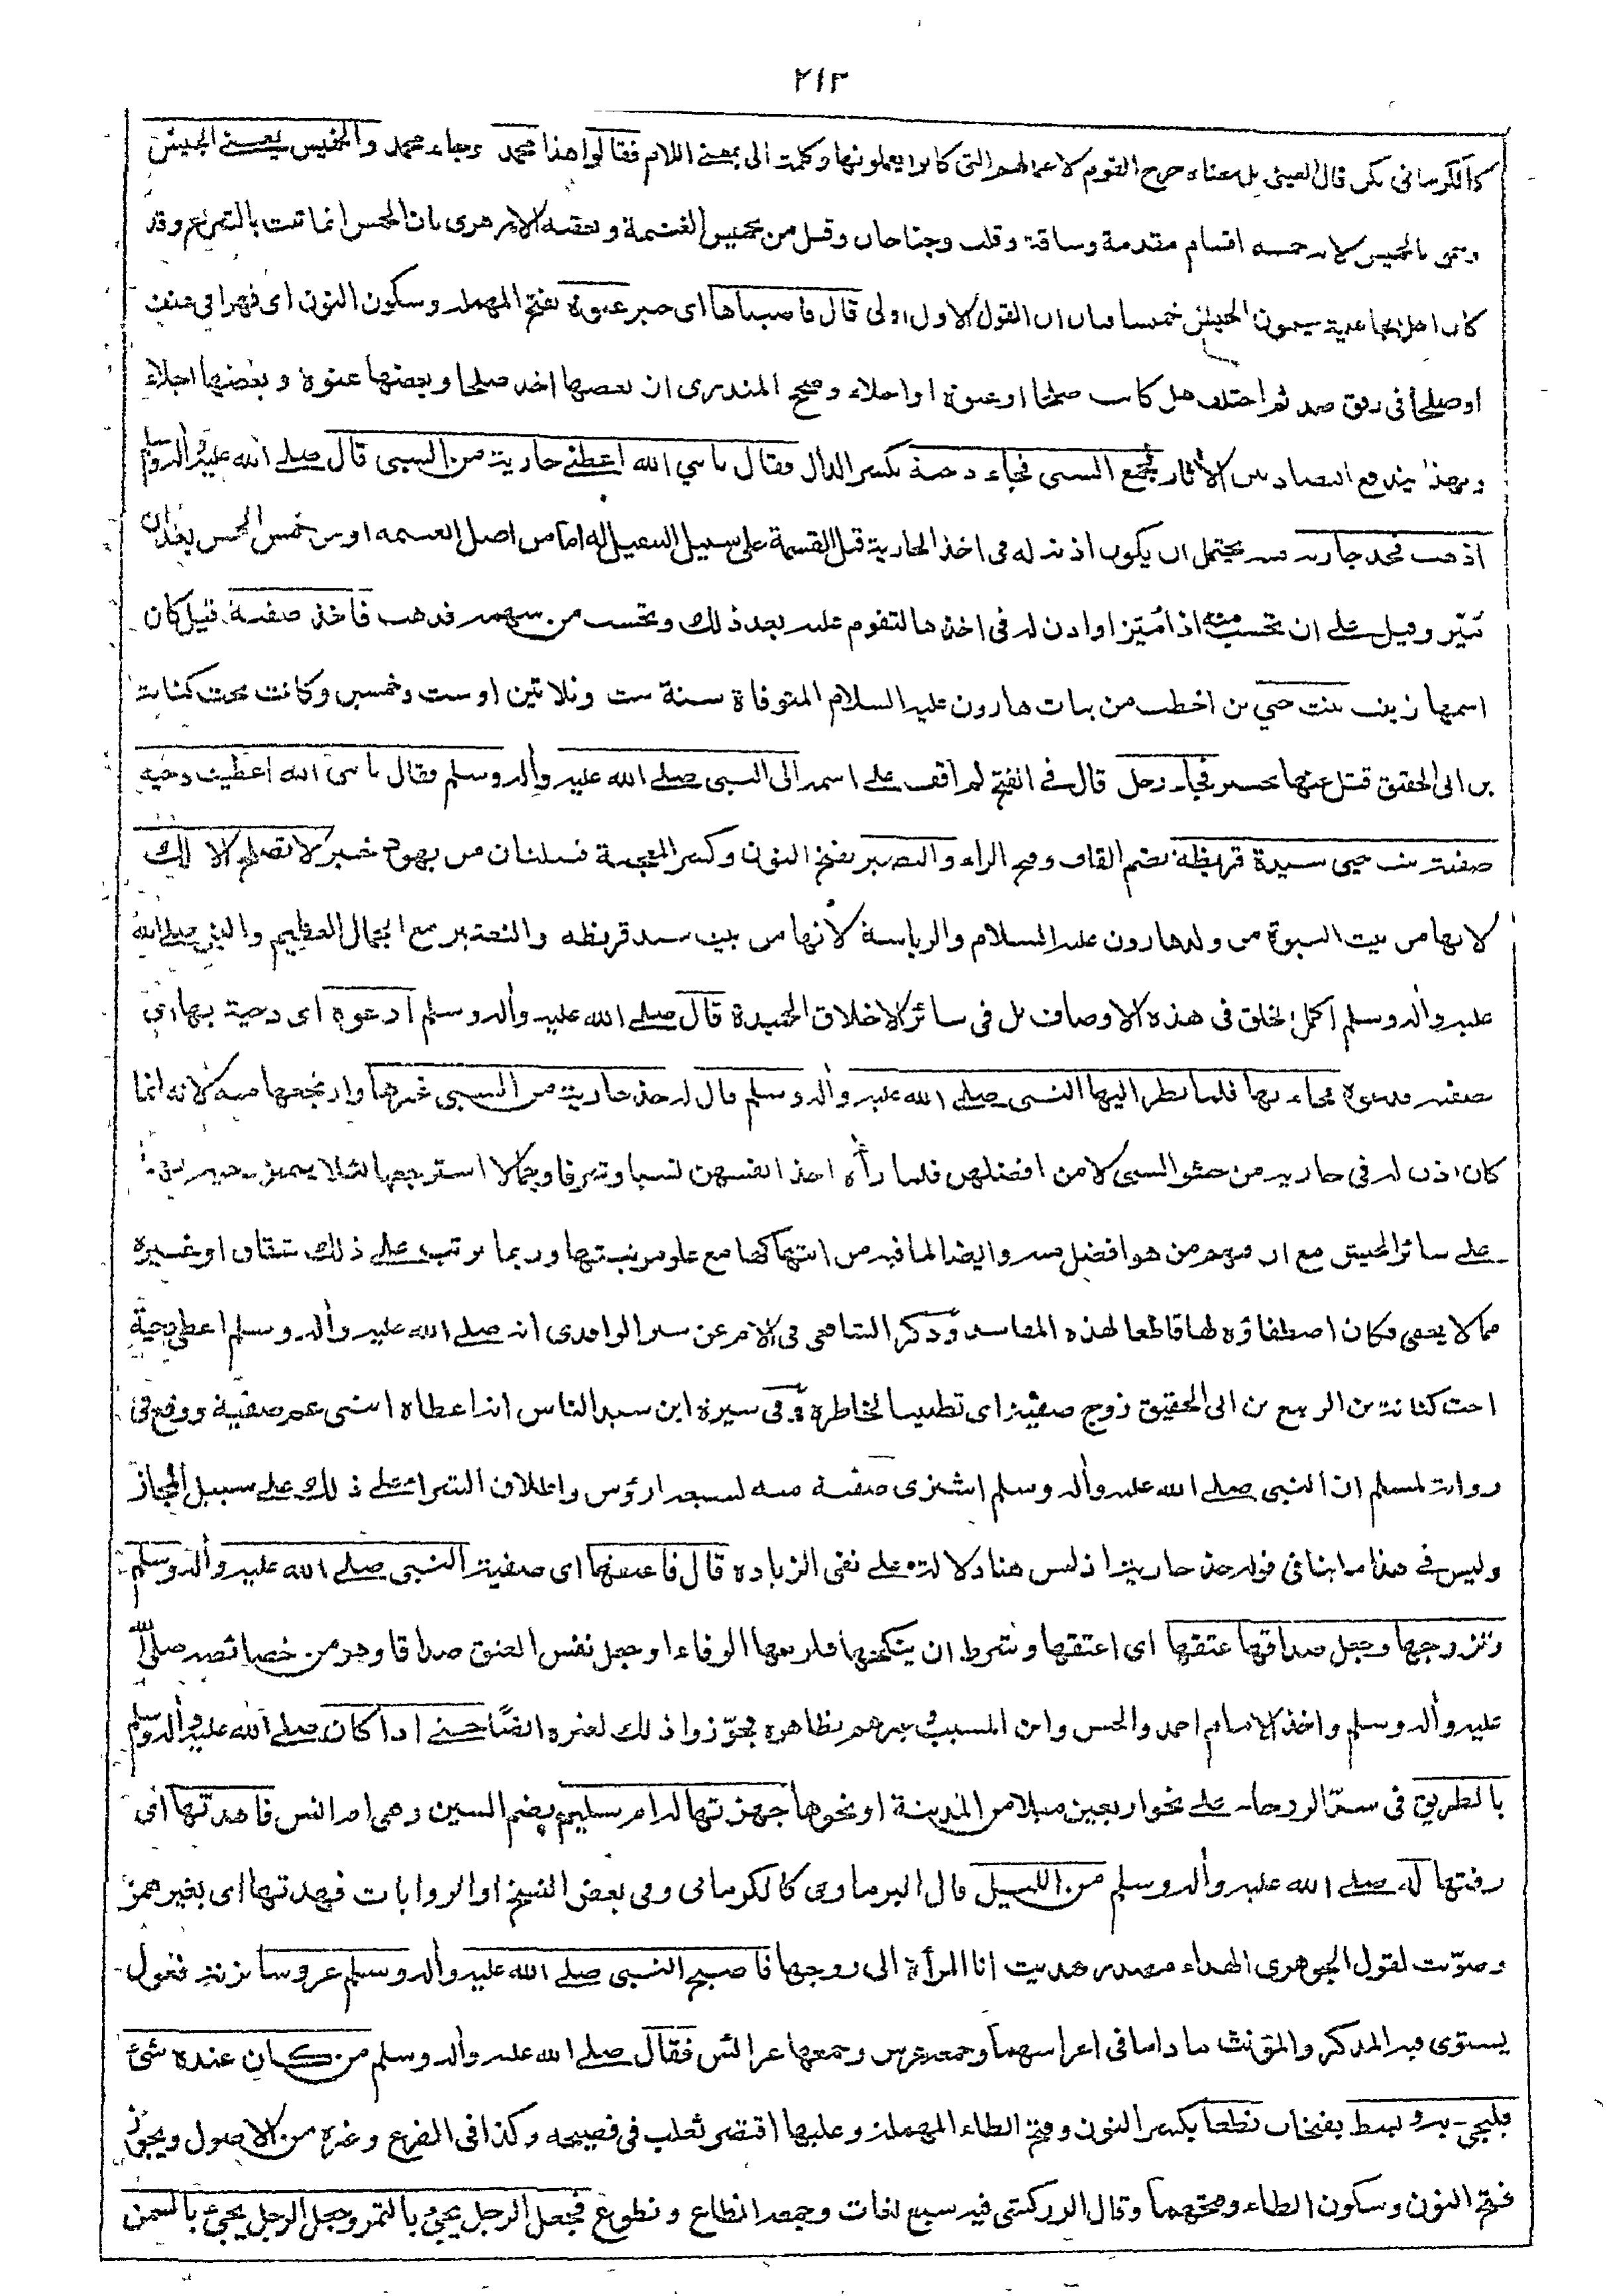 ٢١٣
كذا الكرماني لكن قال العيني بل معناه خرج القوم لاعمالهم التي كانوا يعملونها وكلمة الى بمعنے اللام فقالوا هذا محمد وجاء محمد والخميس يعنے الجيش
وسمي بالخميس لانه خمسة اقسام مقدمة وساقة وقلب وجناحان وقيل من تخميس الغنيمة وتعقبه الازهرى بان الخمس انما ثبت بالشرع وقد
كان اهل الجاهلية يسمون الجيش خميسا فبان ان القول الاول اولى قال فاصبناها اى خيبر عنوة بفتح المهملة وسكون النون اى قهرا في عنف
او صلحا في رفق ضد ثم اختلف هل كانت صلحا او عنوة او اجلاء وصحح المنذرى ان بعضها اخذ صلحا وبعضها عنوة وبعضها اجلاء
وبهذا يندفع التضاد بين الآثار فجمع السبى فجاء دحية بكسر الدال فقال يا نبي الله اعطنے جارية من السبى قال صلے الله عليه وآله وسلم
اذهب فخذ جارية منه يحتمل ان يكون اذنه له في اخذ الجارية قبل القسمة على سبيل التنفيل له اما من اصل الغنيمة او من خمس الخمس بعد ان
تميّز وقيل علے ان تحسب منه اذا تميز او اذن له في اخذها لتقوم عليه بعد ذلك وتحسب من سهمه فذهب فاخذ صفية قيل كان
اسمها زينب بنت حيي بن اخطب من بنات هارون عليه السلام المتوفاة سنة ست وثلاثين او ست وخمسين وكانت تحت كنانة
بن ابى الحقيق قتل عنها بخيبر فجاء رجل قال فے الفتح لم اقف علے اسمه الى النبى صلے الله عليه وآله وسلم فقال يا نبى الله اعطيت دحية
صفية بنت حيى سيدة قريظة بضم القاف وفتح الراء والنضير بفتح النون وكسر المعجمة قبيلتان من يهود خيبر لا تصلح الا لك
لانها من بيت النبوة من ولد هارون عليه السلام والرياسة لانها من بيت سيد قريظة والنضير مع الجمال العظيم والنبى صلے الله
عليه وآله وسلم اكمل الخلق في هذه الاوصاف بل في سائر الاخلاق الحميدة قال صلے الله عليه وآله وسلم ادعوه اى دحية بها اى
بصفية فدعوه فجاء بها فلما نظر اليها النبى صلے الله عليه وآله وسلم قال له خذ جارية من السبى غيرها وارتجعها منه لانه انما
كان اذن له في جارية من حشو السبى لا من افضلهن فلما رآه اخذ انفسهن نسبا وشرفا وجمالا استرجعها لئلا يتميز دحية بها
علے سائر الجيش مع ان فيهم من هو افضل منه وايضا لما فيه من انتهاكها مع علو مرتبتها وربما ترتب علے ذلك شقاق او غيره
مما لا يخفى فكان اصطفاؤه لها قاطعا لهذه المفاسد وذكر الشافعى في الام عن سير الواقدى انه صلے الله عليه وآله وسلم اعطى دحية
اخت كنانة بن الربيع بن ابى الحقيق زوج صفية اى تطييبا لخاطره وفى سيرة ابن سيد الناس انه اعطاه ابنتى عم صفية ووقع في
رواية لمسلم ان النبى صلے الله عليه وآله وسلم اشترى صفية منه بسبعة ارؤس واطلاق الشراء علے ذلك علے سبيل المجاز
وليس فے هذا ما ينافي قوله خذ جارية اذ ليس هنا دلالة علے نفى الزيادة قال فاعتقها اى صفية النبى صلے الله عليه وآله وسلم
وتزوجها وجعل صداقها عتقها اى اعتقها وشرط ان ينكحها فلزمها الوفاء او جعل نفس العتق صداقا وهو من خصائصه صلى الله
عليه وآله وسلم واخذ الامام احمد والحسن وابن المسيب وغيرهم بظاهره فجوّزوا ذلك لغيره ايضًا حتے اذا كان صلے الله عليه وآله وسلم
بالطريق في سدّ الروحاء علے نحو اربعين ميلا من المدينة او نحوها جهزتها له ام سليم بضم السين وهى ام انس فاهدتها اى
زفتها له صلے الله عليه وآله وسلم من الليل قال البرماوى كالكرمانى وفى بعض النسخ او الروايات فهدتها اى بغير همز
وصوّبت لقول الجوهرى الهداء مصدر هديت انا المرأة الى زوجها فاصبح النبى صلے الله عليه وآله وسلم عروسا بزنة فعول
يستوى فيه المذكر والمؤنث ما داما في اعراسهما وجمعه عرس وجمعها عرائس فقال صلے الله عليه وآله وسلم من كان عنده شئ
فليجئ به وبسط بفتحات نطعا بكسر النون وفتح الطاء المهملة وعليها اقتصر ثعلب في فصيحه وكذا في الفرع وغيره من الاصول ويجوز
فتح النون وسكون الطاء وفتحهما وقال الزركشى فيه سبع لغات وجمعه انطاع ونطوع فجعل الرجل يجئ بالتمر وجعل الرجل يجئ بالسمن